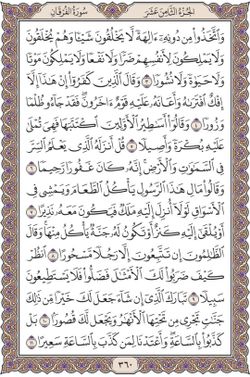 سُورَةُ الفُرْقَانِ الجُزْءُ الثَّامِنَ عَشَرَ
وَٱتَّخَذُوا۟ مِن دُونِهِۦٓ ءَالِهَةً لَّا يَخْلُقُونَ شَيْـًٔا وَهُمْ يُخْلَقُونَ
وَلَا يَمْلِكُونَ لِأَنفُسِهِمْ ضَرًّا وَلَا نَفْعًا وَلَا يَمْلِكُونَ مَوْتًا
وَلَا حَيَوٰةً وَلَا نُشُورًا ٣ وَقَالَ ٱلَّذِينَ كَفَرُوٓا۟ إِنْ هَٰذَآ إِلَّآ
إِفْكٌ ٱفْتَرَىٰهُ وَأَعَانَهُۥ عَلَيْهِ قَوْمٌ ءَاخَرُونَ ۖ فَقَدْ جَآءُو ظُلْمًا
وَزُورًا ٤ وَقَالُوٓا۟ أَسَٰطِيرُ ٱلْأَوَّلِينَ ٱكْتَتَبَهَا فَهِىَ تُمْلَىٰ
عَلَيْهِ بُكْرَةً وَأَصِيلًا ٥ قُلْ أَنزَلَهُ ٱلَّذِى يَعْلَمُ ٱلسِّرَّ
فِى ٱلسَّمَٰوَٰتِ وَٱلْأَرْضِ ۚ إِنَّهُۥ كَانَ غَفُورًا رَّحِيمًا ٦
وَقَالُوا۟ مَالِ هَٰذَا ٱلرَّسُولِ يَأْكُلُ ٱلطَّعَامَ وَيَمْشِى فِى
ٱلْأَسْوَاقِ ۙ لَوْلَآ أُنزِلَ إِلَيْهِ مَلَكٌ فَيَكُونَ مَعَهُۥ نَذِيرًا ٧
أَوْ يُلْقَىٰٓ إِلَيْهِ كَنزٌ أَوْ تَكُونُ لَهُۥ جَنَّةٌ يَأْكُلُ مِنْهَا ۚ وَقَالَ
ٱلظَّٰلِمُونَ إِن تَتَّبِعُونَ إِلَّا رَجُلًا مَّسْحُورًا ٨ ٱنظُرْ
كَيْفَ ضَرَبُوا۟ لَكَ ٱلْأَمْثَٰلَ فَضَلُّوا۟ فَلَا يَسْتَطِيعُونَ
سَبِيلًا ٩ تَبَارَكَ ٱلَّذِىٓ إِن شَآءَ جَعَلَ لَكَ خَيْرًا مِّن ذَٰلِكَ
جَنَّٰتٍ تَجْرِى مِن تَحْتِهَا ٱلْأَنْهَٰرُ وَيَجْعَل لَّكَ قُصُورًۢا ١٠ بَلْ
كَذَّبُوا۟ بِٱلسَّاعَةِ ۖ وَأَعْتَدْنَا لِمَن كَذَّبَ بِٱلسَّاعَةِ سَعِيرًا ١١
٣٦٠